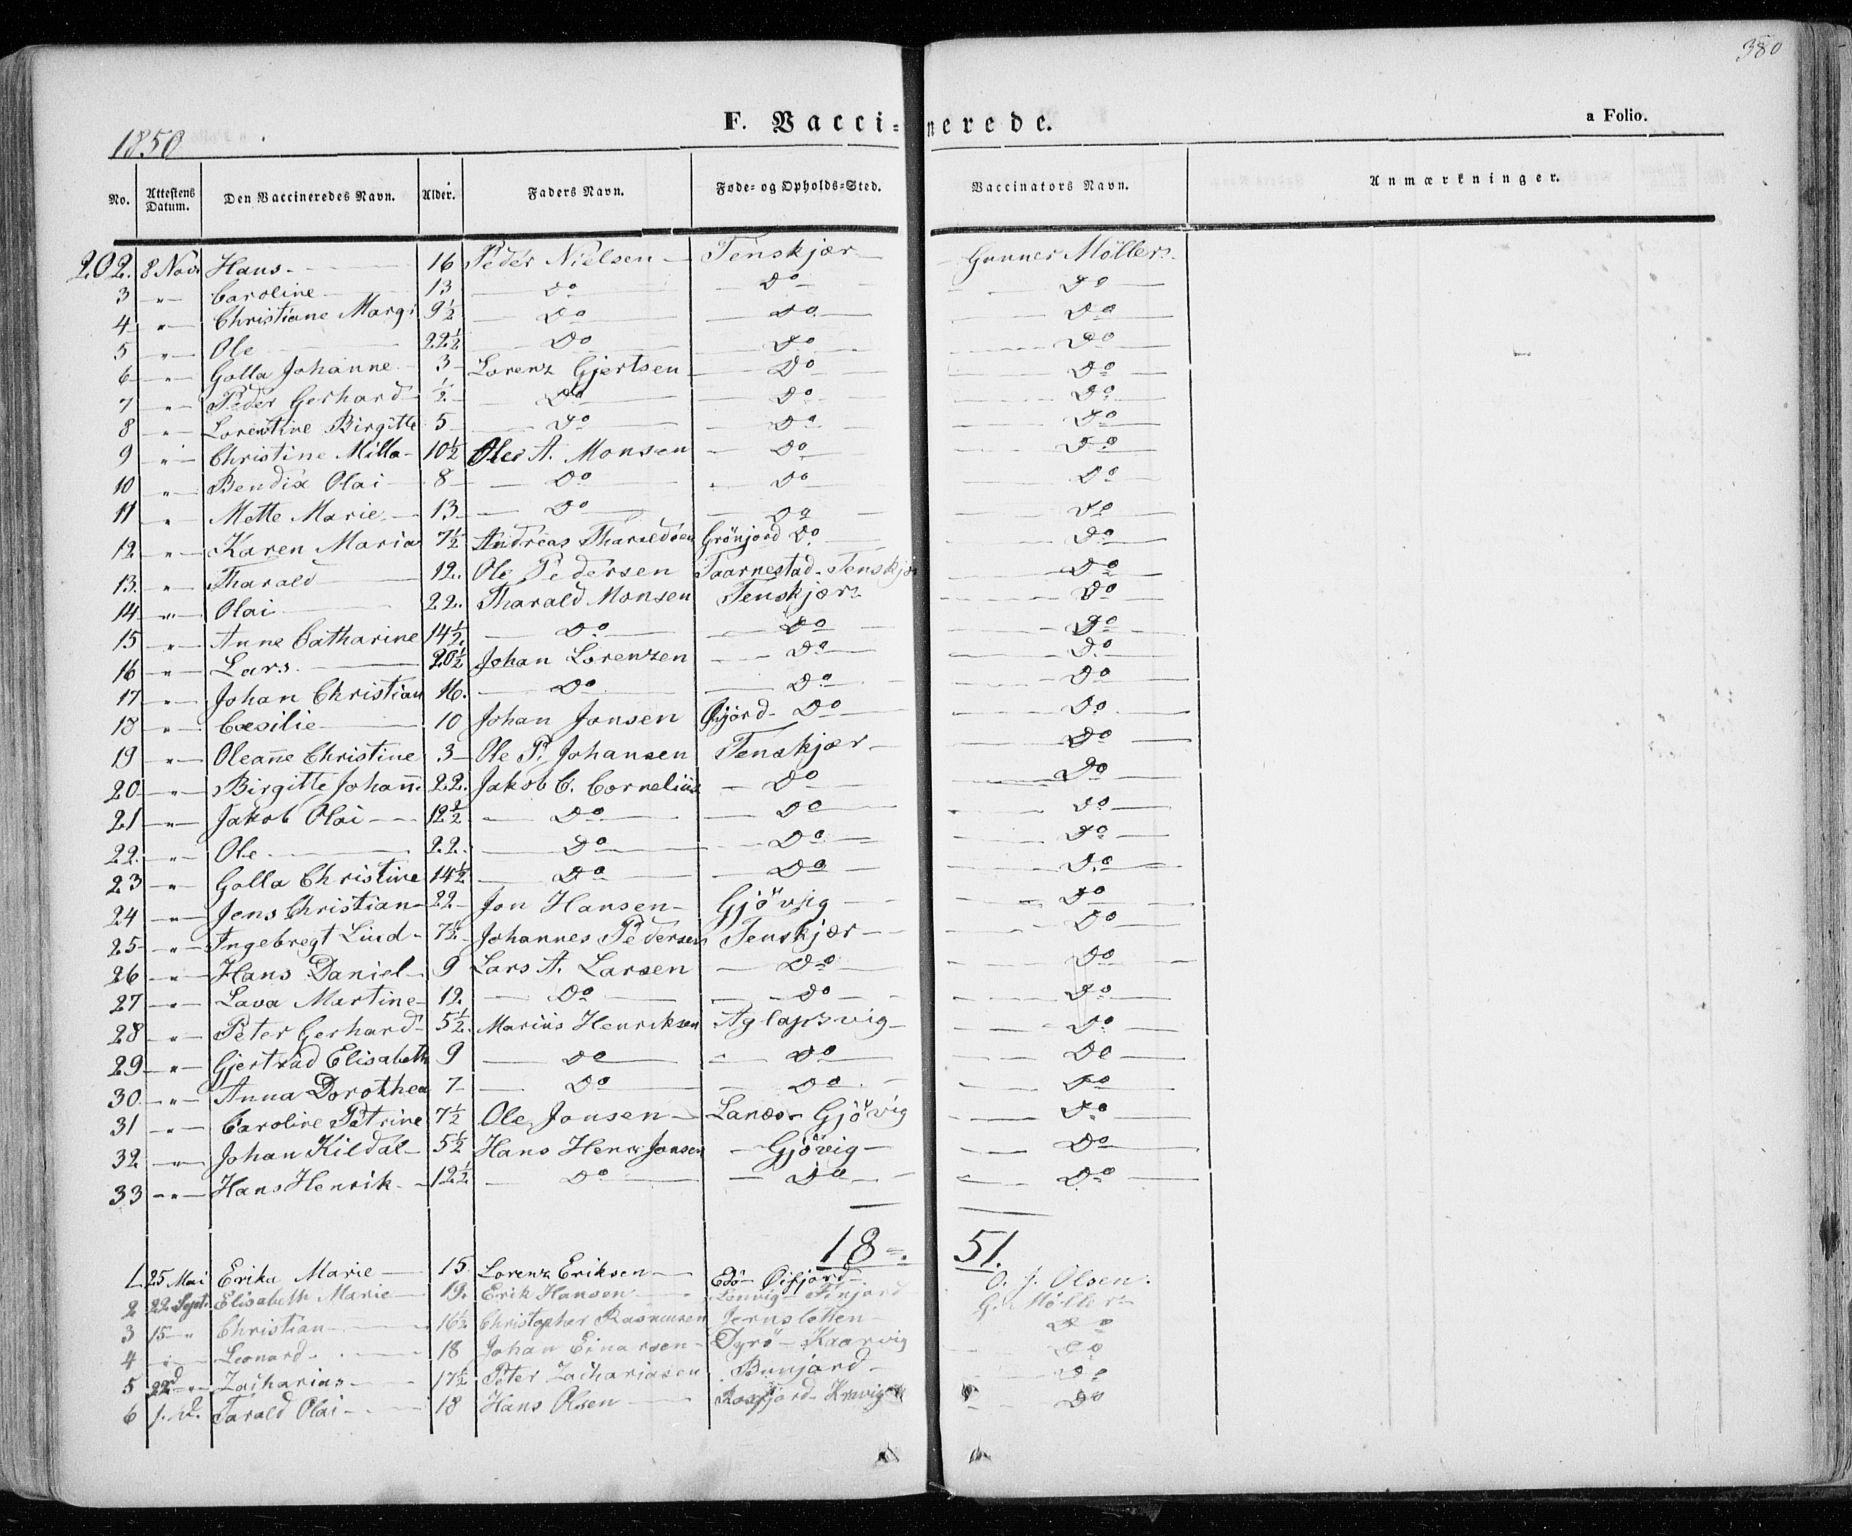 380
F. Vaccinerede.
a Folio.
1850
No. Attestens Datum. Den Vaccineredes Navn. Alder. Faders Navn. Føde- og Opholds-Sted. Vaccinators Navn. Anmærkninger.
202. 8 Novr Hans 16 Peder Nielsen Tenskjær Gunner Möller
3 " Caroline 13 Do Do Do
4 " Christiane Margr 9½ Do Do Do
5 " Ole 22½ Do Do Do
6 " Golla Johanne 3 Lorenz Gjertsen Do Do
7 " Peder Gerhard ½ Do Do Do
8 " Lorentine Birgitte 5 Do Do Do
9 " Christine Milla 10½ Ole A. Monsen Do Do
10 " Bendix Olai 8 Do Do Do
11 " Mette Marie 13 Do Do Do
12 " Karen Maria 7½ Andreas Grönjord Do Do
13. " Tharald 12. Ole Pedersen Taarnestad Tenskjær Do
14 " Olai 22. Tharald Monsen Tenskjær Do
15 " Anne Catharine 14½ Do Do Do
16 " Lars 20½ Johan Lorenzen Do Do
17 " Johan Christian 16. Do Do Do
18 " Cæsilie 10 Johan Jonsen Do Do
19 " Oleane Christine 3 Ole P. Johansen Tenskjær Do
20 " Birgitte Johann 22. Jakob C. Cornelius Do Do
21 " Jakob Olai 12½ Do Do Do
22. " Ole 22. Do Do Do
23 " Golla Christine 14½ Do Do Do
24 " Jens Christian 22 Jon Hansen Gjövig Do
25 " Ingebregt Lind 7½ Johannes Pedersen Tenskjær Do
26 " Hans Daniel 9 Lars A. Larsen Do Do
27 " Lava Martine 12. Do Do Do
28 " Peter Gerhard 5½ Marius Henriksen Aglapsvig Do
29 " Gjertrud Elisabeth 9 Do Do Do
30. " Anna Dorothea 7 Do Do Do
31 " Caroline Petrine 7½ Ole Jonsen Lanæs Gjövig Do
32 " Johan Kildal 5½ Hans Henr Jonsen Gjövig Do
33 " Hans Henrik 12½ Do Do Do
18 51.
1. 25 Mai Erika Marie 15. Lorenz Eriksen Edö Öifjord O. J. Olsen
2 22 Sept. Elisabeth Marie 19. Erik Hansen Lenvig Finjord G. Möller
3 15 " Christian 16½ Christopher Rasmusen Jernsletten Do
4 " Leonard 18 Johan Einarsen Dyrö Kaarvig Do
5 22d " Zacharias 17½ Peter Zachariasen Bunjord Do
6 Tarald Olai 18 Hans Olsen Rossfjord Kravig Do